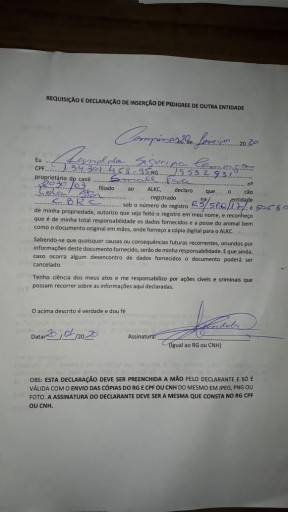 REQUISIÇÃO E DECLARAÇÃO DE INSERÇÃO DE PEDIGREE DE OUTRA ENTIDADE
Campinas 20 20
Eu
CPF RG
proprietário do canil nº
filiado ao ALKC, declaro que o cão
registrado na entidade
CBKC sob o número de registro
de minha propriedade, autorizo que seja feito o registro em meu nome, e reconheço
que é de minha total responsabilidade os dados fornecidos e a posse do animal bem
como o documento original em mãos, onde forneço a cópia digital para o ALKC.
Sabendo-se que quaisquer causas ou consequências futuras recorrentes, oriundos por
informações deste documento fornecido, serão de minha responsabilidade. E que ainda,
caso ocorra algum desencontro de dados fornecidos o documento poderá ser
cancelado.
Tenho ciência dos meus atos e me responsabilizo por ações cíveis e criminais que
possam recorrer sobre as informações aqui declaradas.
O acima descrito é verdade e dou fé
Data: /20 20 Assinatura:
(Igual ao RG ou CNH)
OBS: ESTA DECLARAÇÃO DEVE SER PREENCHIDA A MÃO PELO DECLARANTE E SÓ É
VÁLIDA COM O ENVIO DAS CÓPIAS DO RG E CPF OU CNH DO MESMO EM JPEG, PNG OU
FOTO. A ASSINATURA DO DECLARANTE DEVE SER A MESMA QUE CONSTA NO RG CPF
OU CNH.